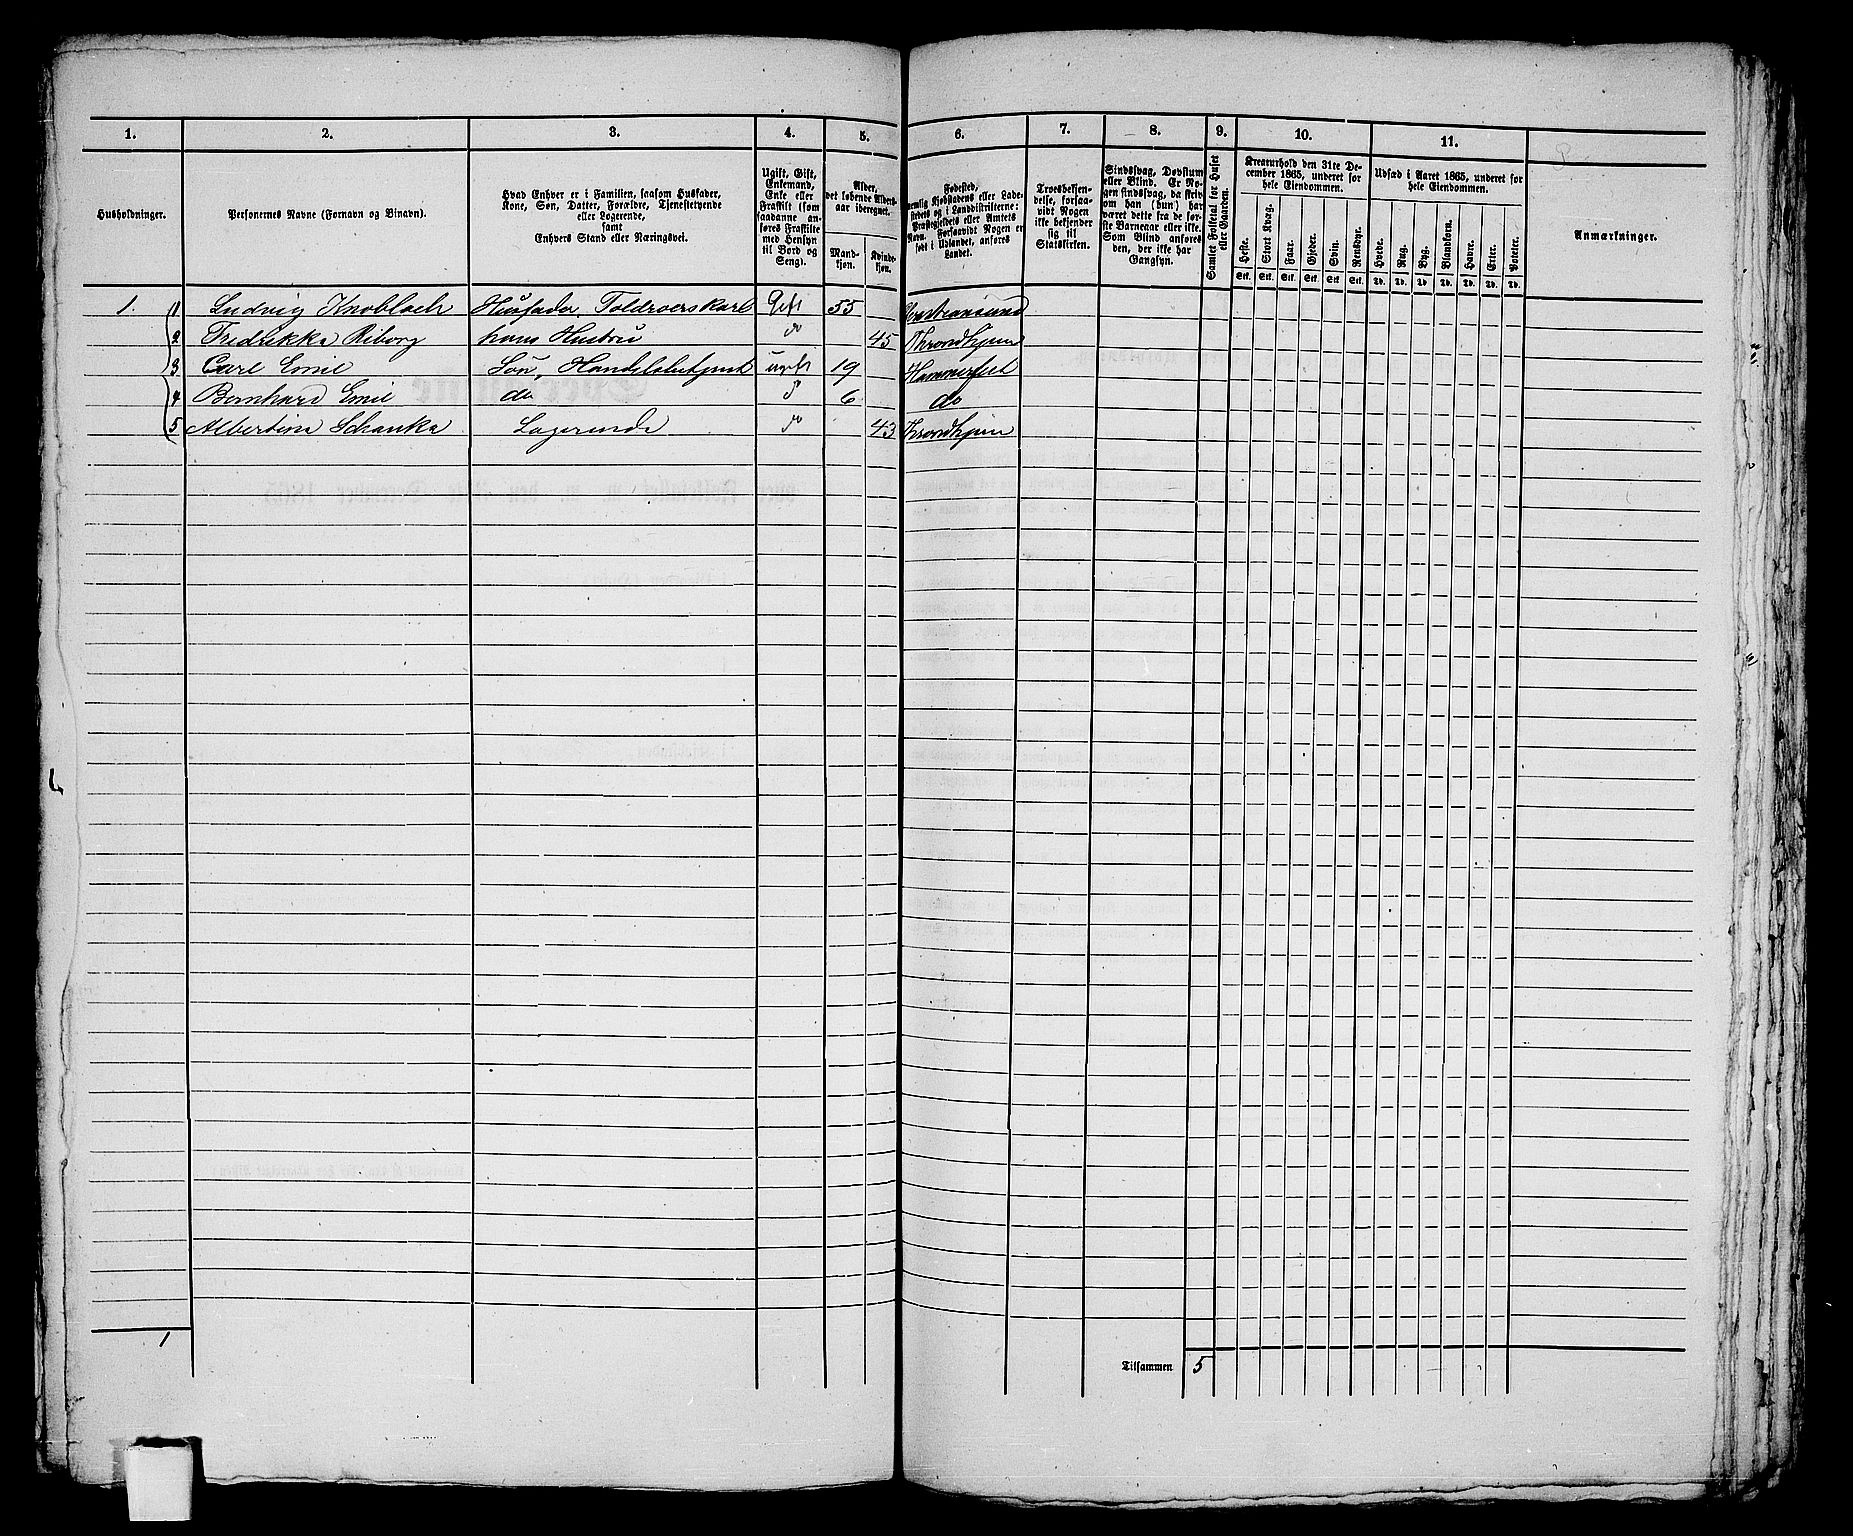 1. 2. 3. 4. 5. 6. 7. 8. 9. 10. 11.
Husholdninger.
Personernes Navne (Fornavn og Binavn).
Hvad Enhver er i Familien, saasom Husfader,
Kone, Søn, Datter, Forældre, Tjenestetyende
eller Logerende,
samt
Enhvers Stand eller Næringsvei.
Ugift, Gift,
Enkemand,
Enke eller
Fraskilt (som
saadanne an-
føres Fraskilte
med Hensyn
til Bord og
Seng).
Alder,
det løbende Alders-
aar iberegnet.
Mand-
kjøn.
Kvinde-
kjøn.
Fødested,
nemlig Kjøbstadens eller Lade-
stedets og i Landdistrikterne:
Præstegjeldets eller Amtets
Navn. Forsaavidt Nogen er
født i Udlandet, anføres
Landet.
Troesbekjen-
delse, forsaa-
vidt Nogen
ikke bekjender
sig til
Statskirken.
Sindssvag, Døvstum
eller Blind. Er No-
gen sindssvag, da skriv
om han (hun) har
været dette fra de før-
ste Barneaar eller ikke.
Som Blind anføres
den, der ikke har
Gangsyn.
Samlet Folketal for Huset
eller Gaarden.
Kreaturhold den 31te De-
cember 1865, underet for
hele Eiendommen.
Heste. Stort Kvæg. Faar. Gjeder. Svin. Rensdyr.
Stk. Stk. Stk. Stk. Stk. Stk.
Udsæd i Aaret 1865, underet for
hele Eiendommen.
Hvede. Rug. Byg. Blandkorn. Havre. Erter. Poteter.
Td. Td. Td. Td. Td. Td. Td.
Anmærkninger.
1. 1 Ludvig Knoblach Husfader, Toldroerskarl Gift 55 Christiansund
2 Fredrikka Riborg hans Hustru do 45 Throndhjem
3 Carl Emil Søn, Handelsbetjent ugift 19 Hammerfest
4 Bernhard Emil do do 6 do
5 Albertina Schanka Logerende do 43 Throndhjem
1
Tilsammen 5